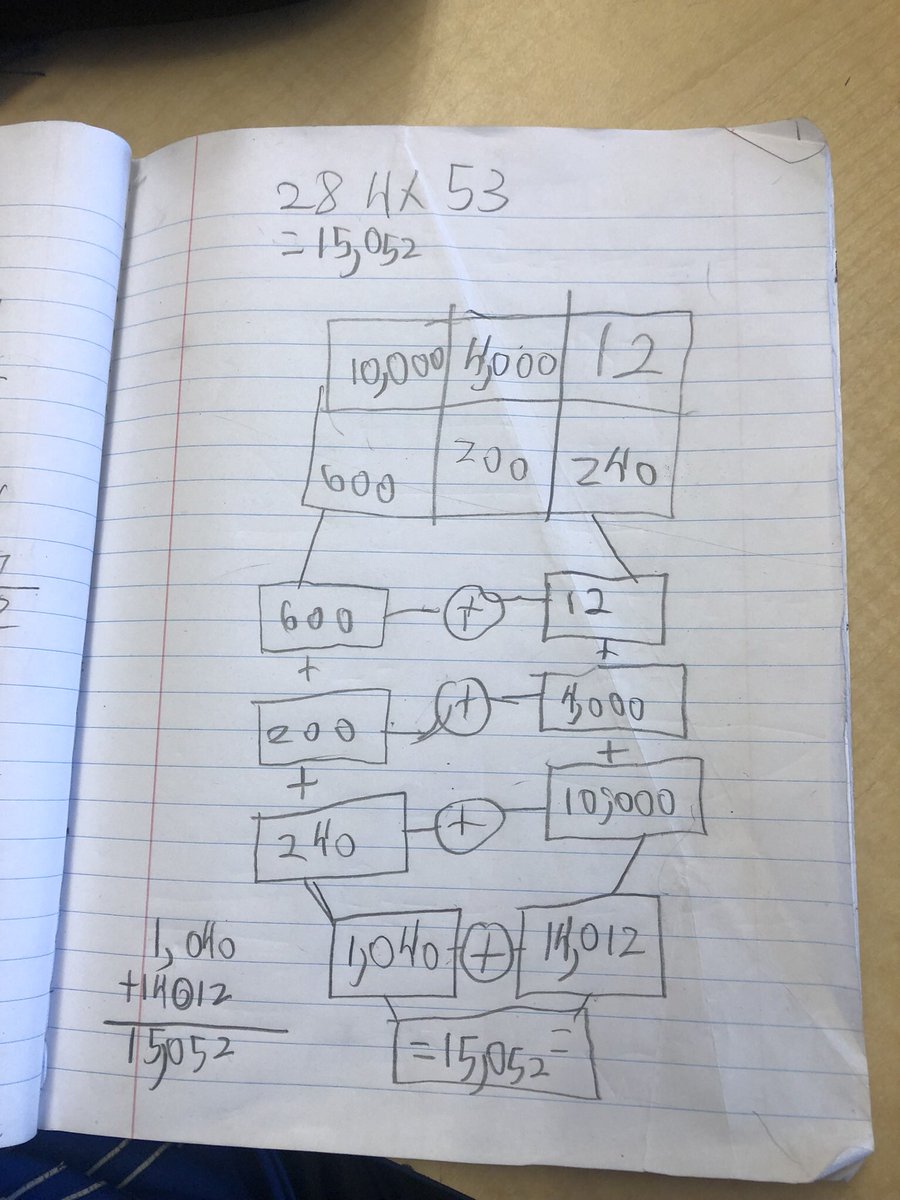 284 x 53
= 15,052
10,000 4,000 12
600 200 240
600 + 12
+ +
200 + 4,000
+ +
240 + 10,000
1,040 + 14,012
= 15,052 =
1,040
+14012
15,052